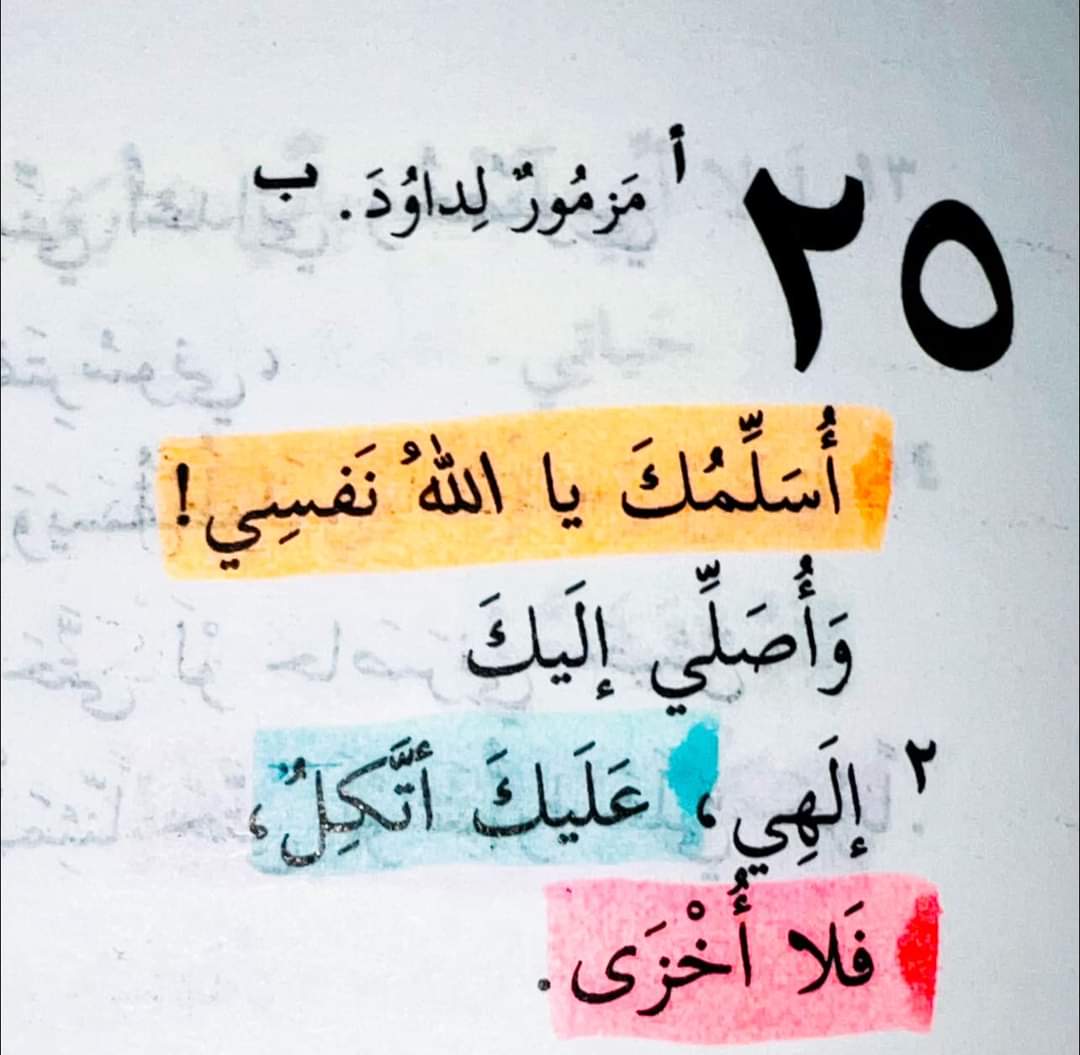 ٢٥ أ مَزمُورٌ لِداوُدَ. ب
أُسَلِّمُكَ يا اللهُ نَفسِي!
وَأُصَلِّي إلَيكَ
٢ إلَهِي، عَلَيكَ أتَّكِلُ،
فَلا أُخْزَى.